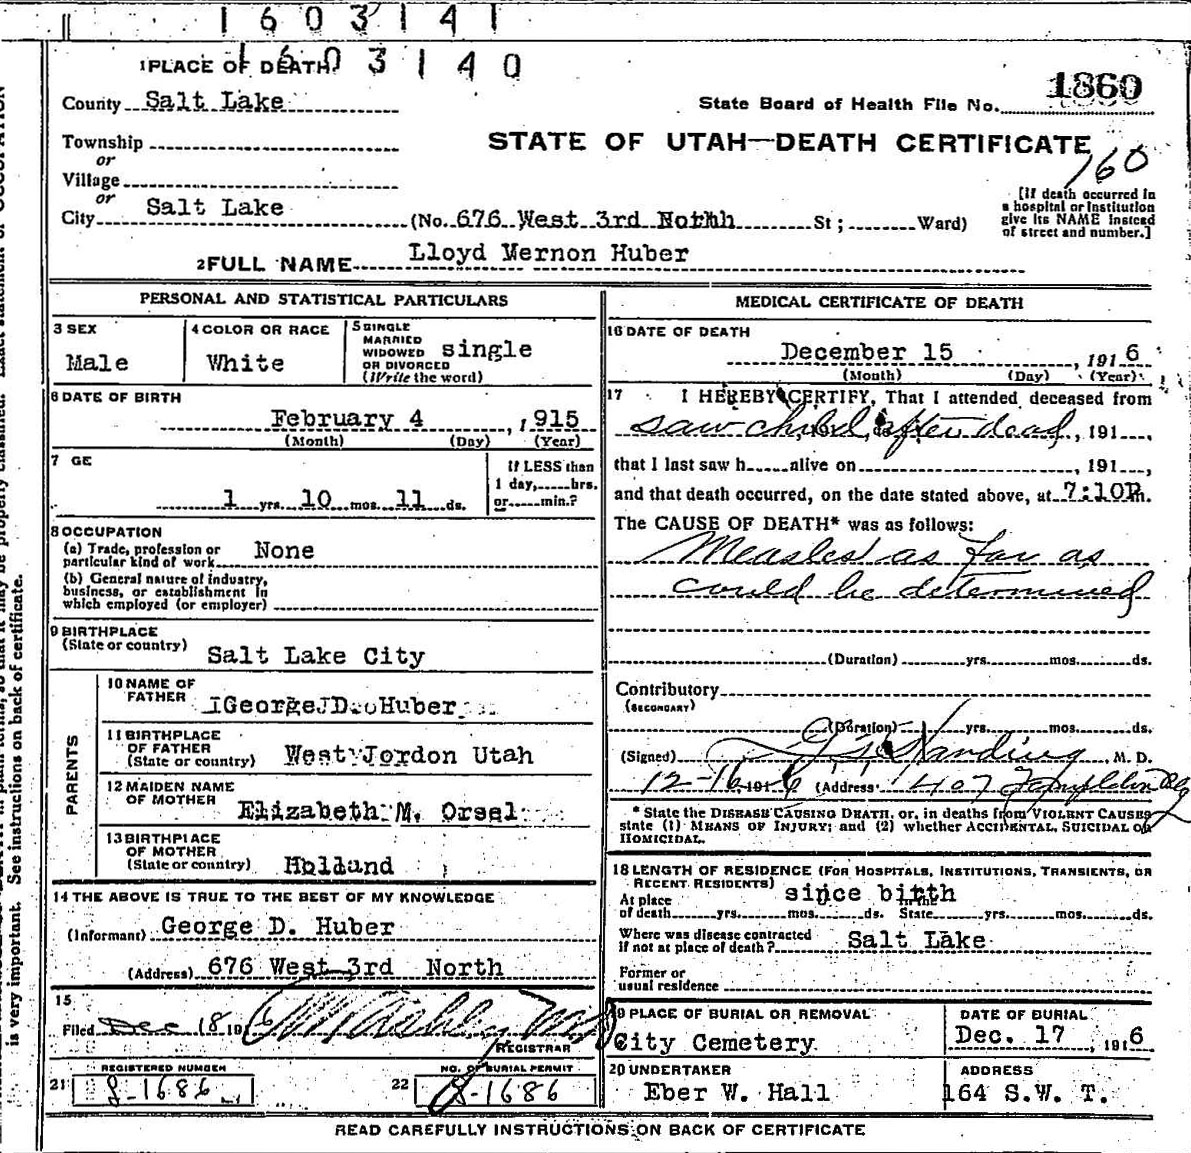 1603141
1603140
1 PLACE OF DEATH
County Salt Lake
State Board of Health File No. 1860
Township
or
Village
or
City Salt Lake (No. 676 West 3rd North St; Ward)
STATE OF UTAH—DEATH CERTIFICATE
160
[If death occurred in
a hospital or institution
give its NAME instead
of street and number.]
2 FULL NAME Lloyd Vernon Huber
PERSONAL AND STATISTICAL PARTICULARS
3 SEX
Male
4 COLOR OR RACE
White
5 SINGLE
MARRIED
WIDOWED
OR DIVORCED
(Write the word)
single
6 DATE OF BIRTH
February 4, 915
(Month) (Day) (Year)
7 GE
1 yrs. 10 mos. 11 ds.
If LESS than
1 day, hrs.
or min.?
8 OCCUPATION
(a) Trade, profession or
particular kind of work None
(b) General nature of industry,
business, or establishment in
which employed (or employer)
9 BIRTHPLACE
(State or country) Salt Lake City
PARENTS
10 NAME OF
FATHER George D. Huber
11 BIRTHPLACE
OF FATHER
(State or country) West Jordon Utah
12 MAIDEN NAME
OF MOTHER Elizabeth M. Orsel
13 BIRTHPLACE
OF MOTHER
(State or country) Holland
14 THE ABOVE IS TRUE TO THE BEST OF MY KNOWLEDGE
(Informant) George D. Huber
(Address) 676 West 3rd North
15
Filed Dec 18 1916
REGISTRAR
REGISTERED NUMBER
21 8-1686
NO. OF BURIAL PERMIT
22 8-1686
MEDICAL CERTIFICATE OF DEATH
16 DATE OF DEATH
December 15, 1916
(Month) (Day) (Year)
17 I HEREBY CERTIFY, That I attended deceased from
saw child after dead, 191
that I last saw h alive on , 191 ,
and that death occurred, on the date stated above, at 7:10P m.
The CAUSE OF DEATH* was as follows:
Measles as far as
could be determined
(Duration) yrs. mos. ds.
Contributory
(SECONDARY)
(Duration) yrs. mos. ds.
(Signed) M. D.
12-16 1916 (Address 407 Templeton Blg
* State the DISEASE CAUSING DEATH, or, in deaths from VIOLENT CAUSES
state (1) MEANS OF INJURY; and (2) whether ACCIDENTAL, SUICIDAL OR
HOMICIDAL.
18 LENGTH OF RESIDENCE (FOR HOSPITALS, INSTITUTIONS, TRANSIENTS, OR
RECENT RESIDENTS) since birth
At place In the
of death yrs. mos. ds. State yrs. mos. ds.
Where was disease contracted
if not at place of death? Salt Lake
Former or
usual residence
19 PLACE OF BURIAL OR REMOVAL
City Cemetery
DATE OF BURIAL
Dec. 17, 1916
20 UNDERTAKER
Eber W. Hall
ADDRESS
164 S.W. T.
READ CAREFULLY INSTRUCTIONS ON BACK OF CERTIFICATE
is very important. See instructions on back of certificate.